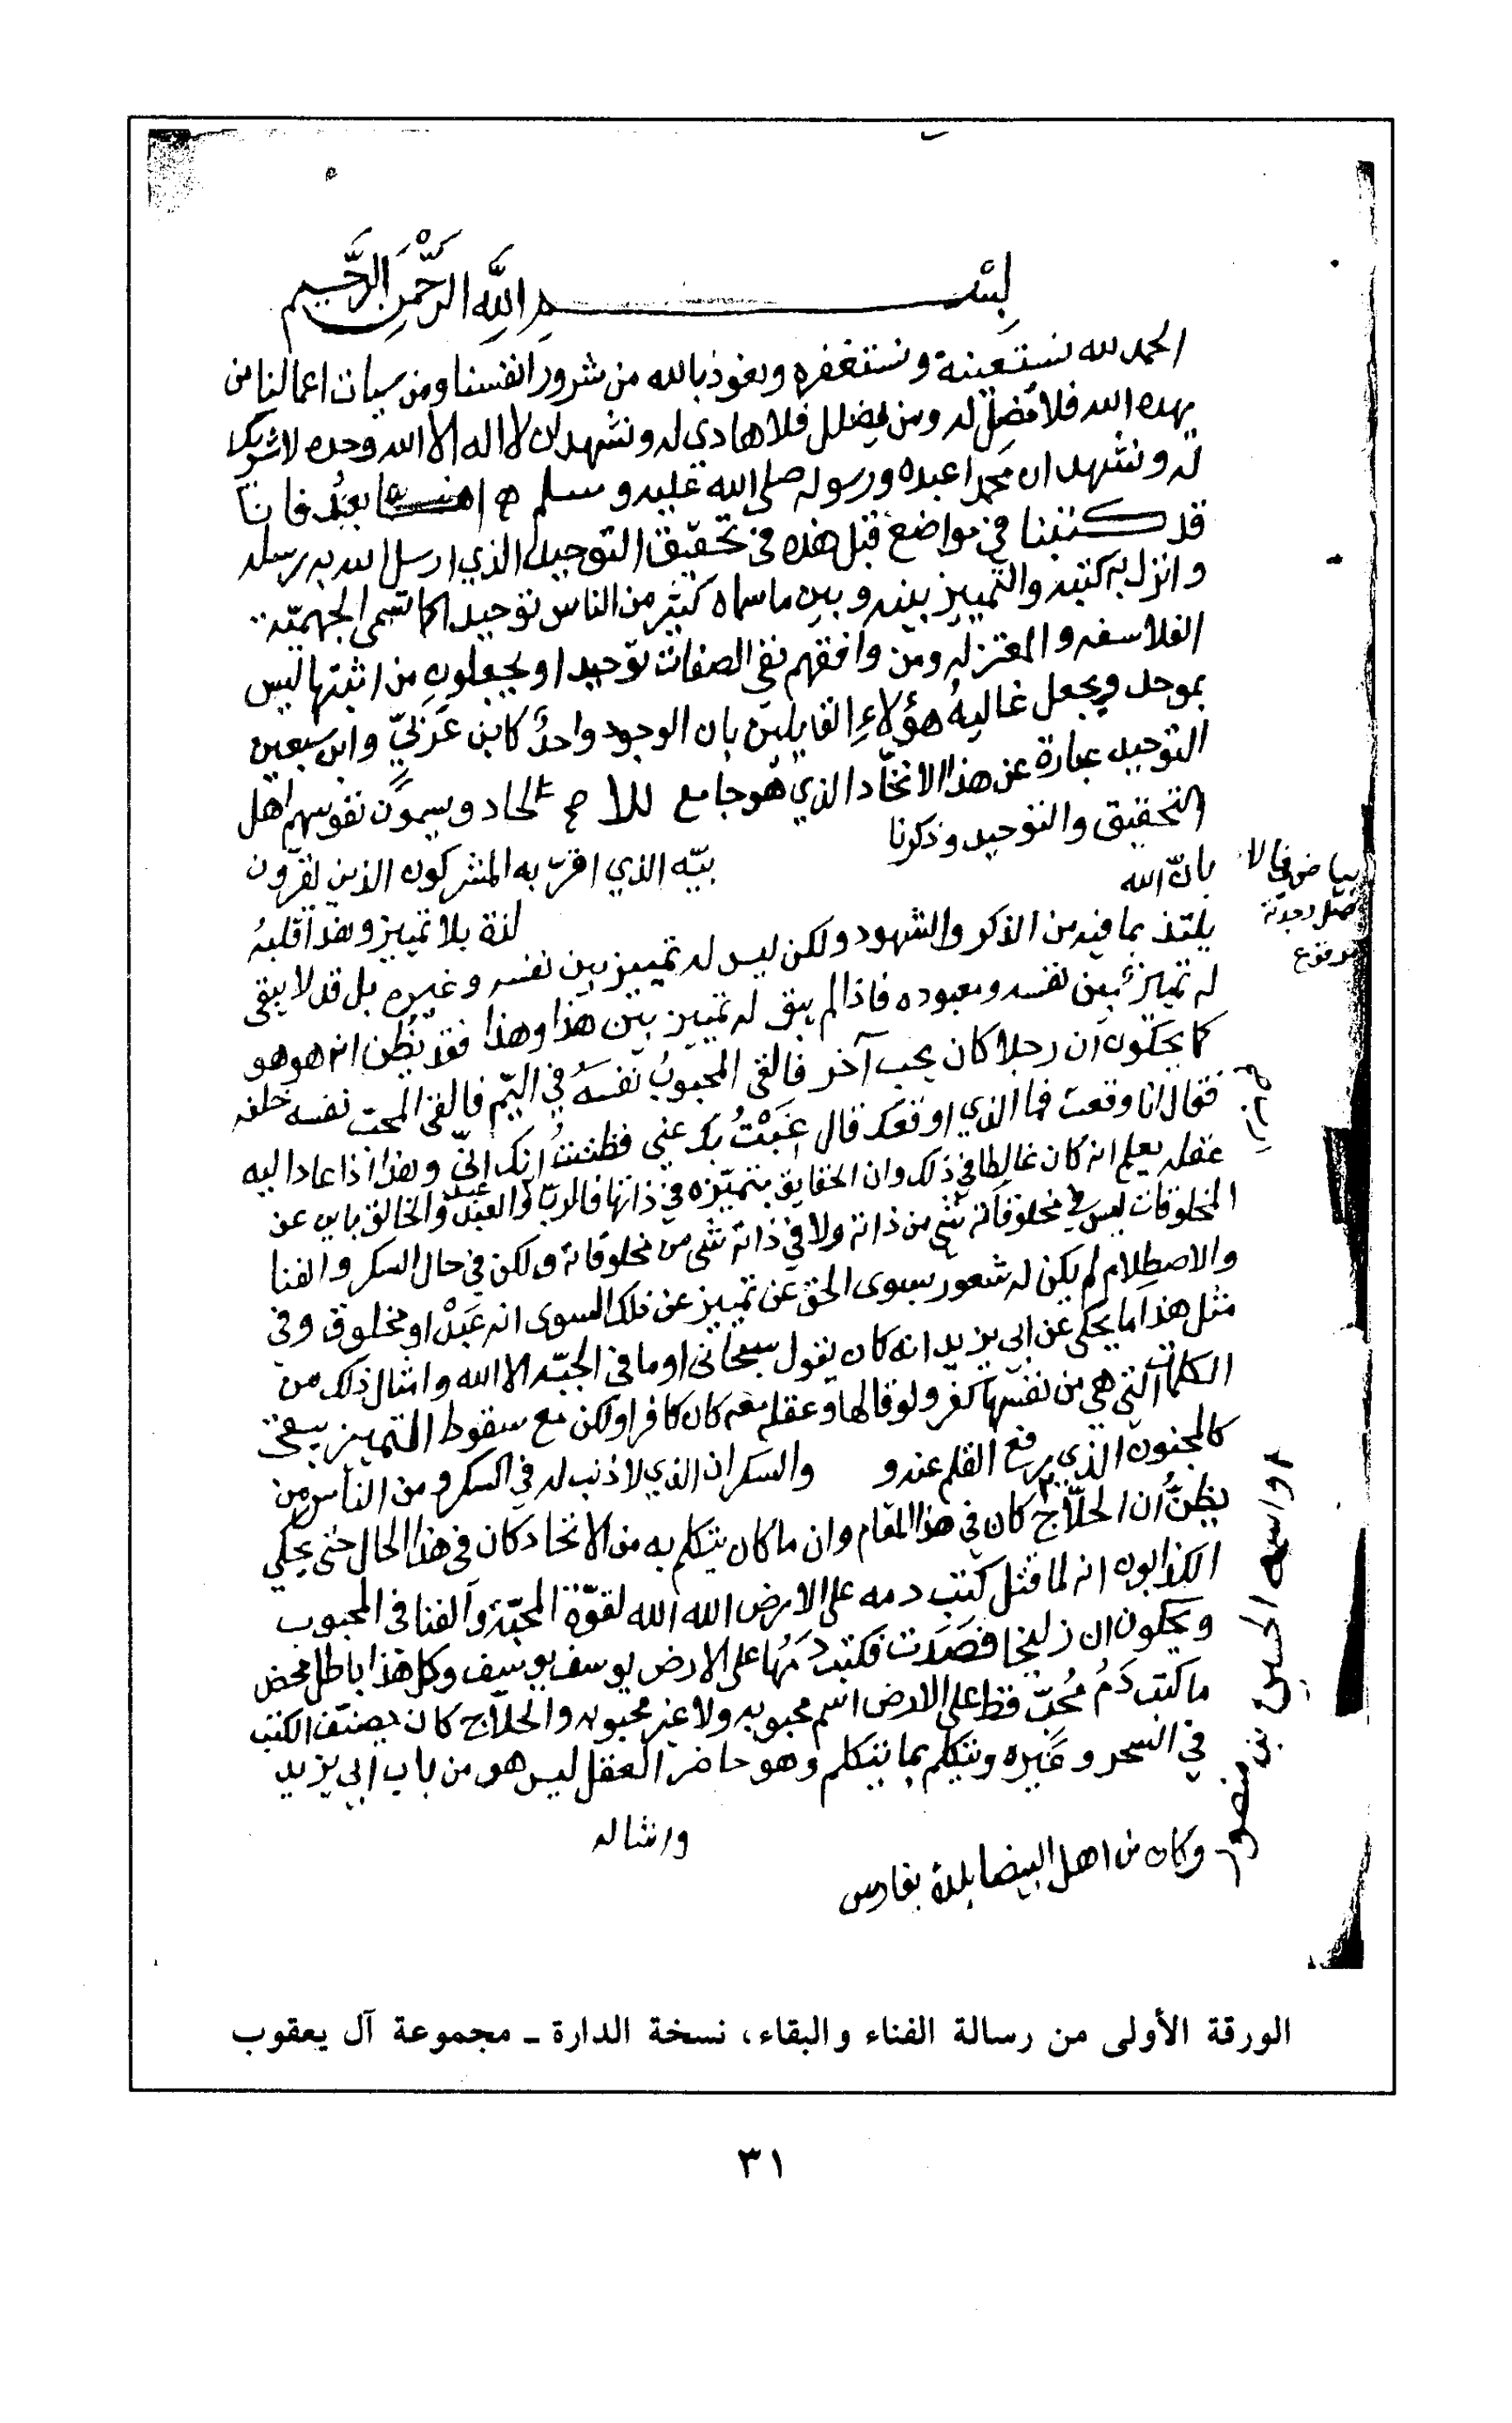 بسم الله الرحمن الرحيم
الحمد لله نستعينه ونستغفره ونعوذ بالله من شرور انفسنا ومن سيات اعمالنا من
يهده الله فلا مُضِلّ له ومن يضلل فلا هادي له ونشهد ان لا اله الا الله وحده لا شريك
له ونشهد ان محمدا عبده ورسوله صلى الله عليه وسلم اما بعدُ فانا
قد كتبنا في مواضع قبل هذه في تحقيق التوحيد الذي ارسل الله به رسله
وانزل به كتبه والتمييز بينه وبين ما سماه كثير من الناس توحيدا كما تسمى الجهميّة
الفلاسفه والمعتزله ومن وافقهم نفي الصفات توحيدا ويجعلون من اثبتها ليس
بموحد ويجعل غاليةُ هؤلاءِ القايلين بان الوجود واحدٌ كابن عَرَبيّ وابن سبعين
التوحيد عبارة عن هذا الاتحّاد الذي هو جامع للا لحاد ويسموُّن نفوسهم اهل
التحقيق والتوحيد وذكرنا
بانّ الله بيّه الذي اقرّ به المشركون الذين يقرّون
يلتذ بما فيه من الذكر والشهود ولكن ليس له تمييز بين نفسه وغيره بل قد لا يبقى لذة بلا تمييز وهذا قلبهُ
له تمييز بين نفسه ومعبوده فاذا لم يبق له تمييز بين هذا وهذا فقد يظُن انه هو هو
كما يحكون ان رجلا كان يحب آخر فالقى المحبوبُ نفسهُ في اليّم فالقى المحبّ نفسه خلفه
فقال انا وقعت فما الذي اوقعك قال غبْتُ بك عني فظننتُ انك انّي وهذا اذا عاد اليه
عقله يعلم انه كان غالطا في ذلك وان الحقايق متميّزه في ذاتها فالربّ والعبد عبد والخالق باين عن
المخلوقات ليس في مخلوقاته شي من ذاته ولا في ذاته شي من مخلوقاته ولكن في حال السكر والفنا
والاصطِلام لم يكن له شعور بسوى الحق عن تمييز عن ذلك السوى انه عَبْد او مخلوق وفي
مثل هذا ما يحكى عن ابي يزيد انه كان يقول سبحاني او ما في الجبّه الا الله وامثال ذلك من
الكلمات التي هي من نفسها كفر ولو قالها وعقله معه كان كافرا ولكن مع سقوط التمييز يبقى
كالمجنون الذي رفع القلم عنه و والسكران الذي لا ذنب له في السكر ومن الناس من
يظنُّ ان الحلّاج كان في هذا المقام وان ما كان يتكلم به من الاتحاد كان في هذا الحال حتى يحكي
الكذابون انه لما قتل كتب دمه على الارض الله الله لقوّة المحبّة والفنا في المحبوب
ويحكون ان زليخا فصَدَت فكتب دَمُها على الارض يوسف يوسف وكل هذا باطل محض
ما كتب دَمُ مُحبّ قط على الارض اسم محبوبه ولا غير محبوبه والحلّاج كان يصنّف الكتب
في السحر وغَيره ويتكلم بما يتكلم وهو حاضر العقل ليس هو من باب ابي يزيد
وامثاله
بياض في الا
صل وجدته
مرفوع
واسمه الحسين بن منصور
وكان من اهل البيضا بلدة بفارس
الورقة الأولى من رسالة الفناء والبقاء، نسخة الدارة ـ مجموعة آل يعقوب
٣١